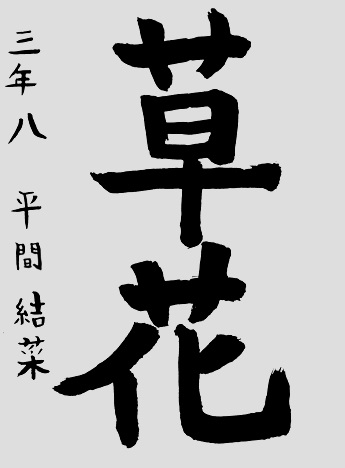 草花
三年八 平間結菜